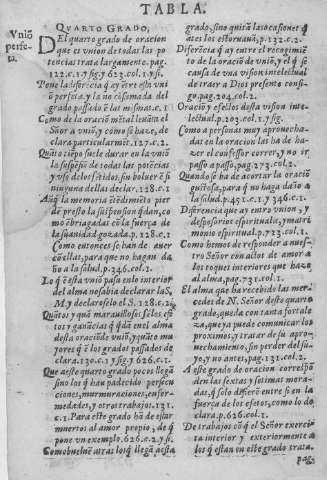 TABLA.
Vniõ
perfe-
ta.
QVARTO GRADO,
DEl quarto grado de oracion
que es vnion de todas las po
tencias trata largamente. pag.
122.c.1 y sig. y 623.col.1.y si.
Pone la diferẽcia q̃ ay ẽtre esta vniõ
perfeta y la no cõsumada del
grado passado ẽ los mismos nũ.c.1
Como de la oraciõ mẽtal leuãta el
Señor a vniõ, y como se haze, de
clara particularmẽt.127.c.2.
Quãto tiẽpo suele durar en la vniõ
la suspẽsiõ de todas las potẽcias
y vso delos sẽtidos, sin boluer ẽ si
ninguna dellas declar.128.c.1
Aũq̃ la memoria ẽtẽdimiẽto pier
de presto la suspẽsion q̃dan, co
mo ẽbriagadas cõ la fuerça de
la suauidad gozada. p.128.c.1
Como entonces se han de auer
cõ ellas, para que no hagan da
ño a la salud. p.346.col.1.
Lo q̃ ẽ esta vniõ passa enlo interior
del alma no sabia declarar la S.
M. y declaroselo el S.128.c.2.
Quãtos y quã marauillosos sõ los efe
tos y ganãcias q̃ q̃dã enel alma
desta oraciõ de vniõ, y quãto ma
yores q̃ ẽ los grados passados de
clara.130.c.1 y sig. y 626.c.1.
Que aeste quarto grado pocos llegã
sino los q̃ han padecido persecu
ciones, murmuraciones, enfer-
medades, y otros trabajos.131.
c.1. Para este grado hã de estar
muertos al amor propio, de q̃
pone vn exemplo. 626.c.2. y si.
Como buelue atras los q̃ llegã aesta
grado, sino quitã las ocasiones q̃
ates los estoruauã, p.132.c.2.
Diferẽcia q̃ ay entre el recogimiẽ
to de la oraciõ de vniõ, y el q̃ se
causa de vna vision intelectual
de traer a Dios presente consi-
go. pag.204.col.2.
Oraciõ y efetos desta vision intele-
ctual. p.203.col.1. y sig.
Como a personas muy aprouecha-
das en la oracion las ha de ha-
zer el confessor correr, y no ir
passo a passo, pag.273.col.2.
Quando se ha de acortar la oraciõ
gustosa, para q̃ no haga daño a
la salud. p.451.c.1. y 346.c.1.
Diferencia que ay entre vnion, y
desposorio espiritual, y matri-
monio espiritual. p.723.col.1.
Como hemos de responder a nues-
tro Señor con actos de amor a
los toques interiores que haze
al alma, pag.731.col.1.
El alma que ha recebido las mer-
cedes de N. Señor desto quarto
grado, queda con tanta fortale
za, que ya puede comunicar los
proximos, y tratar de su apro-
uechamiento, sin perder del su-
yo, y no antes, pag.131.col.2.
A este grado de oracion correspõ
den las sextas y setimas mora-
das, q̃ solo difiere entre si en la
fuerça de los efetos, como lo de
clara. p.626.col.1.
De trabajos cõ q̃ el Señor exercita
interior y exteriormente a
los q̃ estan en este grado trata.
pag.